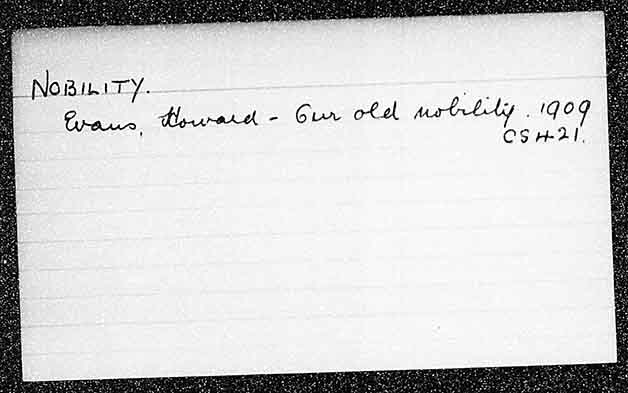 NOBILITY.
Evans, Howard - Our old nobility. 1909
CS421.